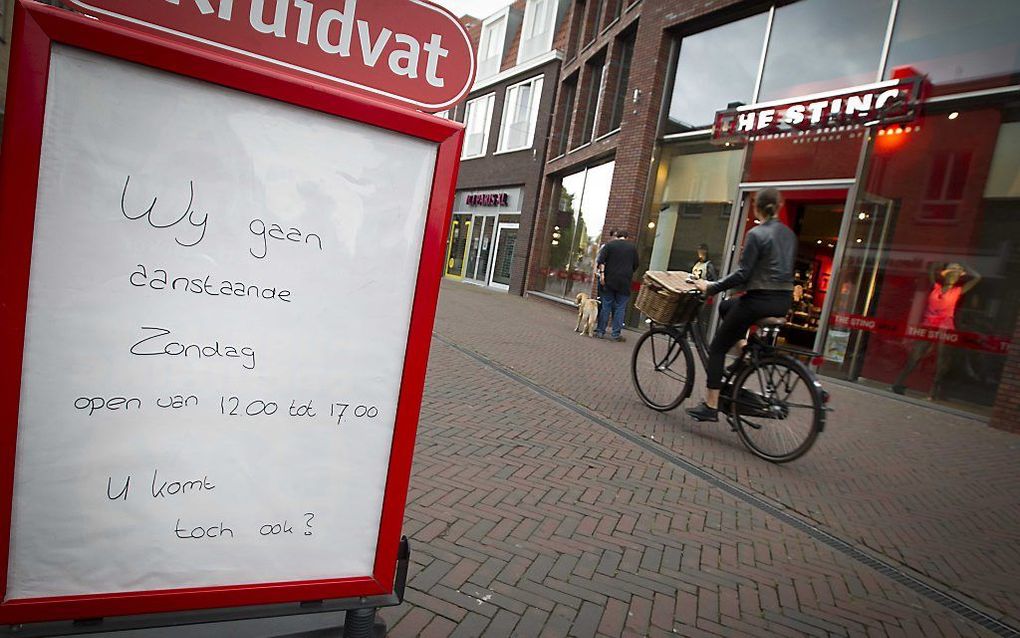 kruidvat
Wy gaan
aanstaande
Zondag
open van 12.00 tot 17.00
U komt
toch ook?
THE STING
THE STING
THE STING